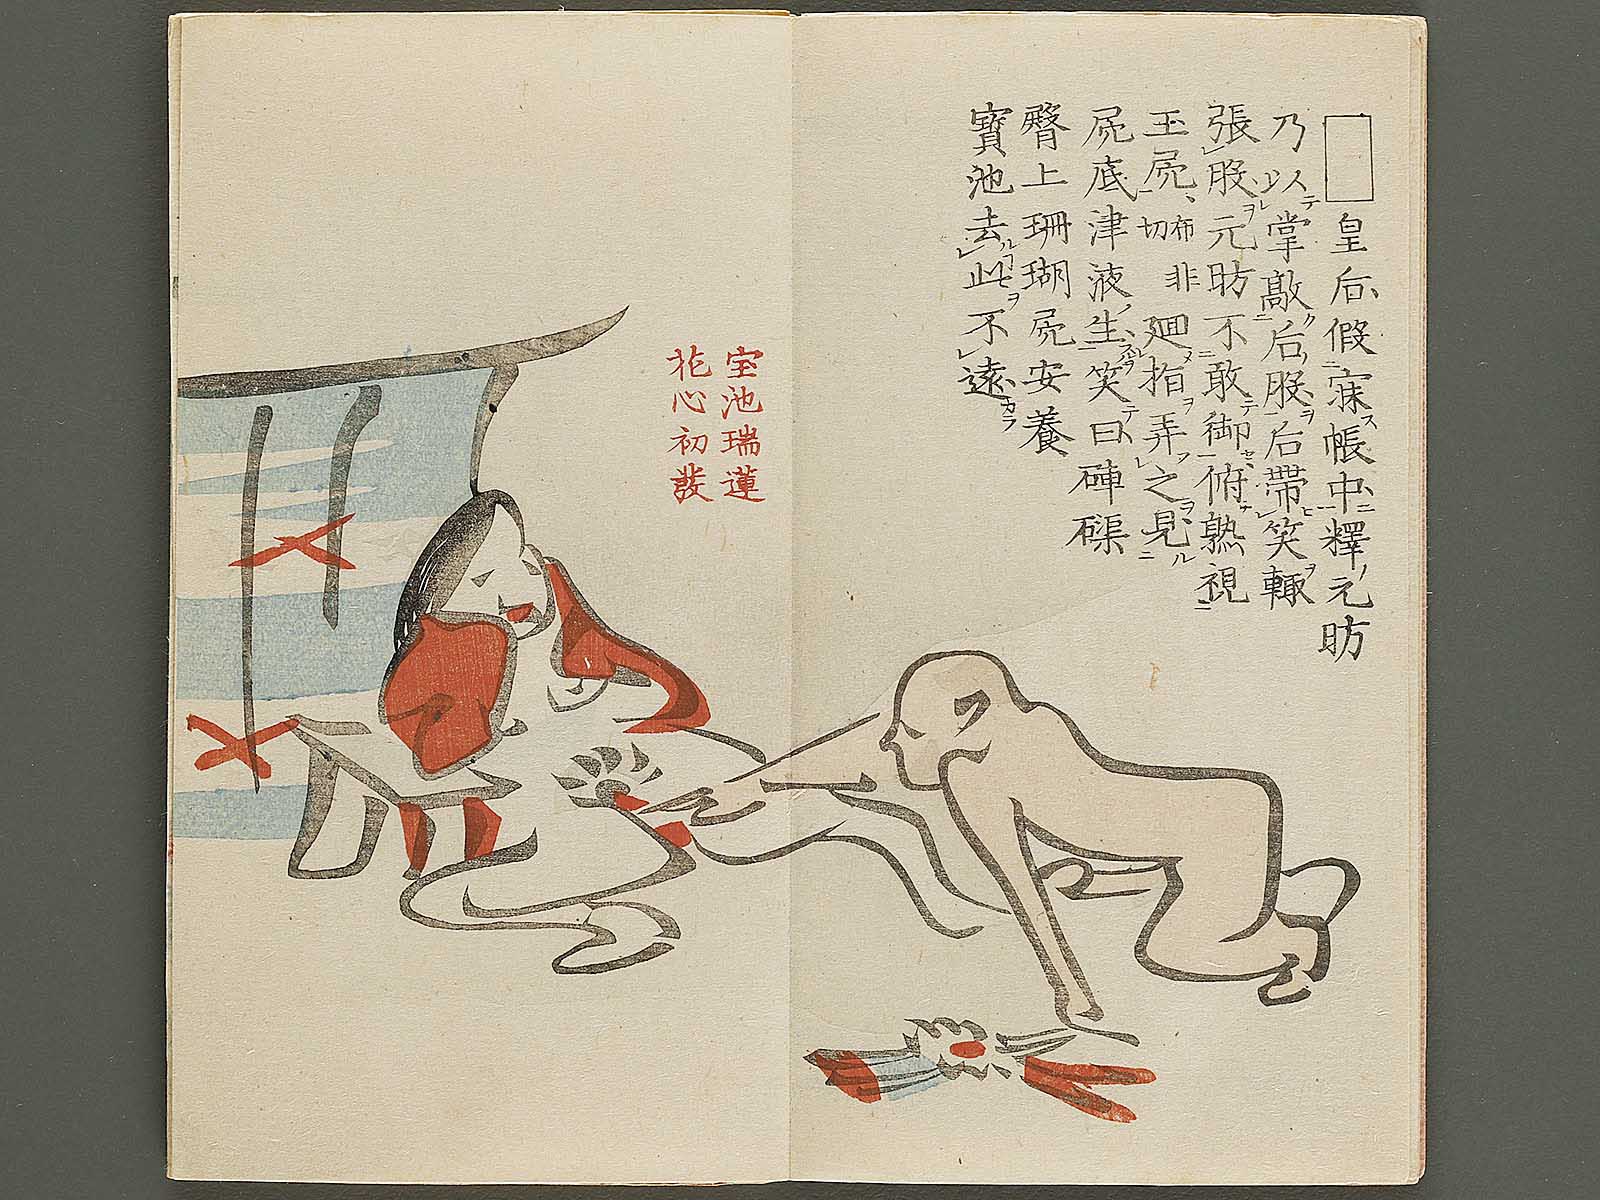 皇后假寐帳中釋元昉
乃以掌敲后股后帶笑輙
張股元昉不敢御俯熟視
玉屄布非切廻指弄之見
屄底津液生笑曰硨磲
臀上珊瑚屄安養
寶池去此不遠
宝池瑞蓮
花心初發